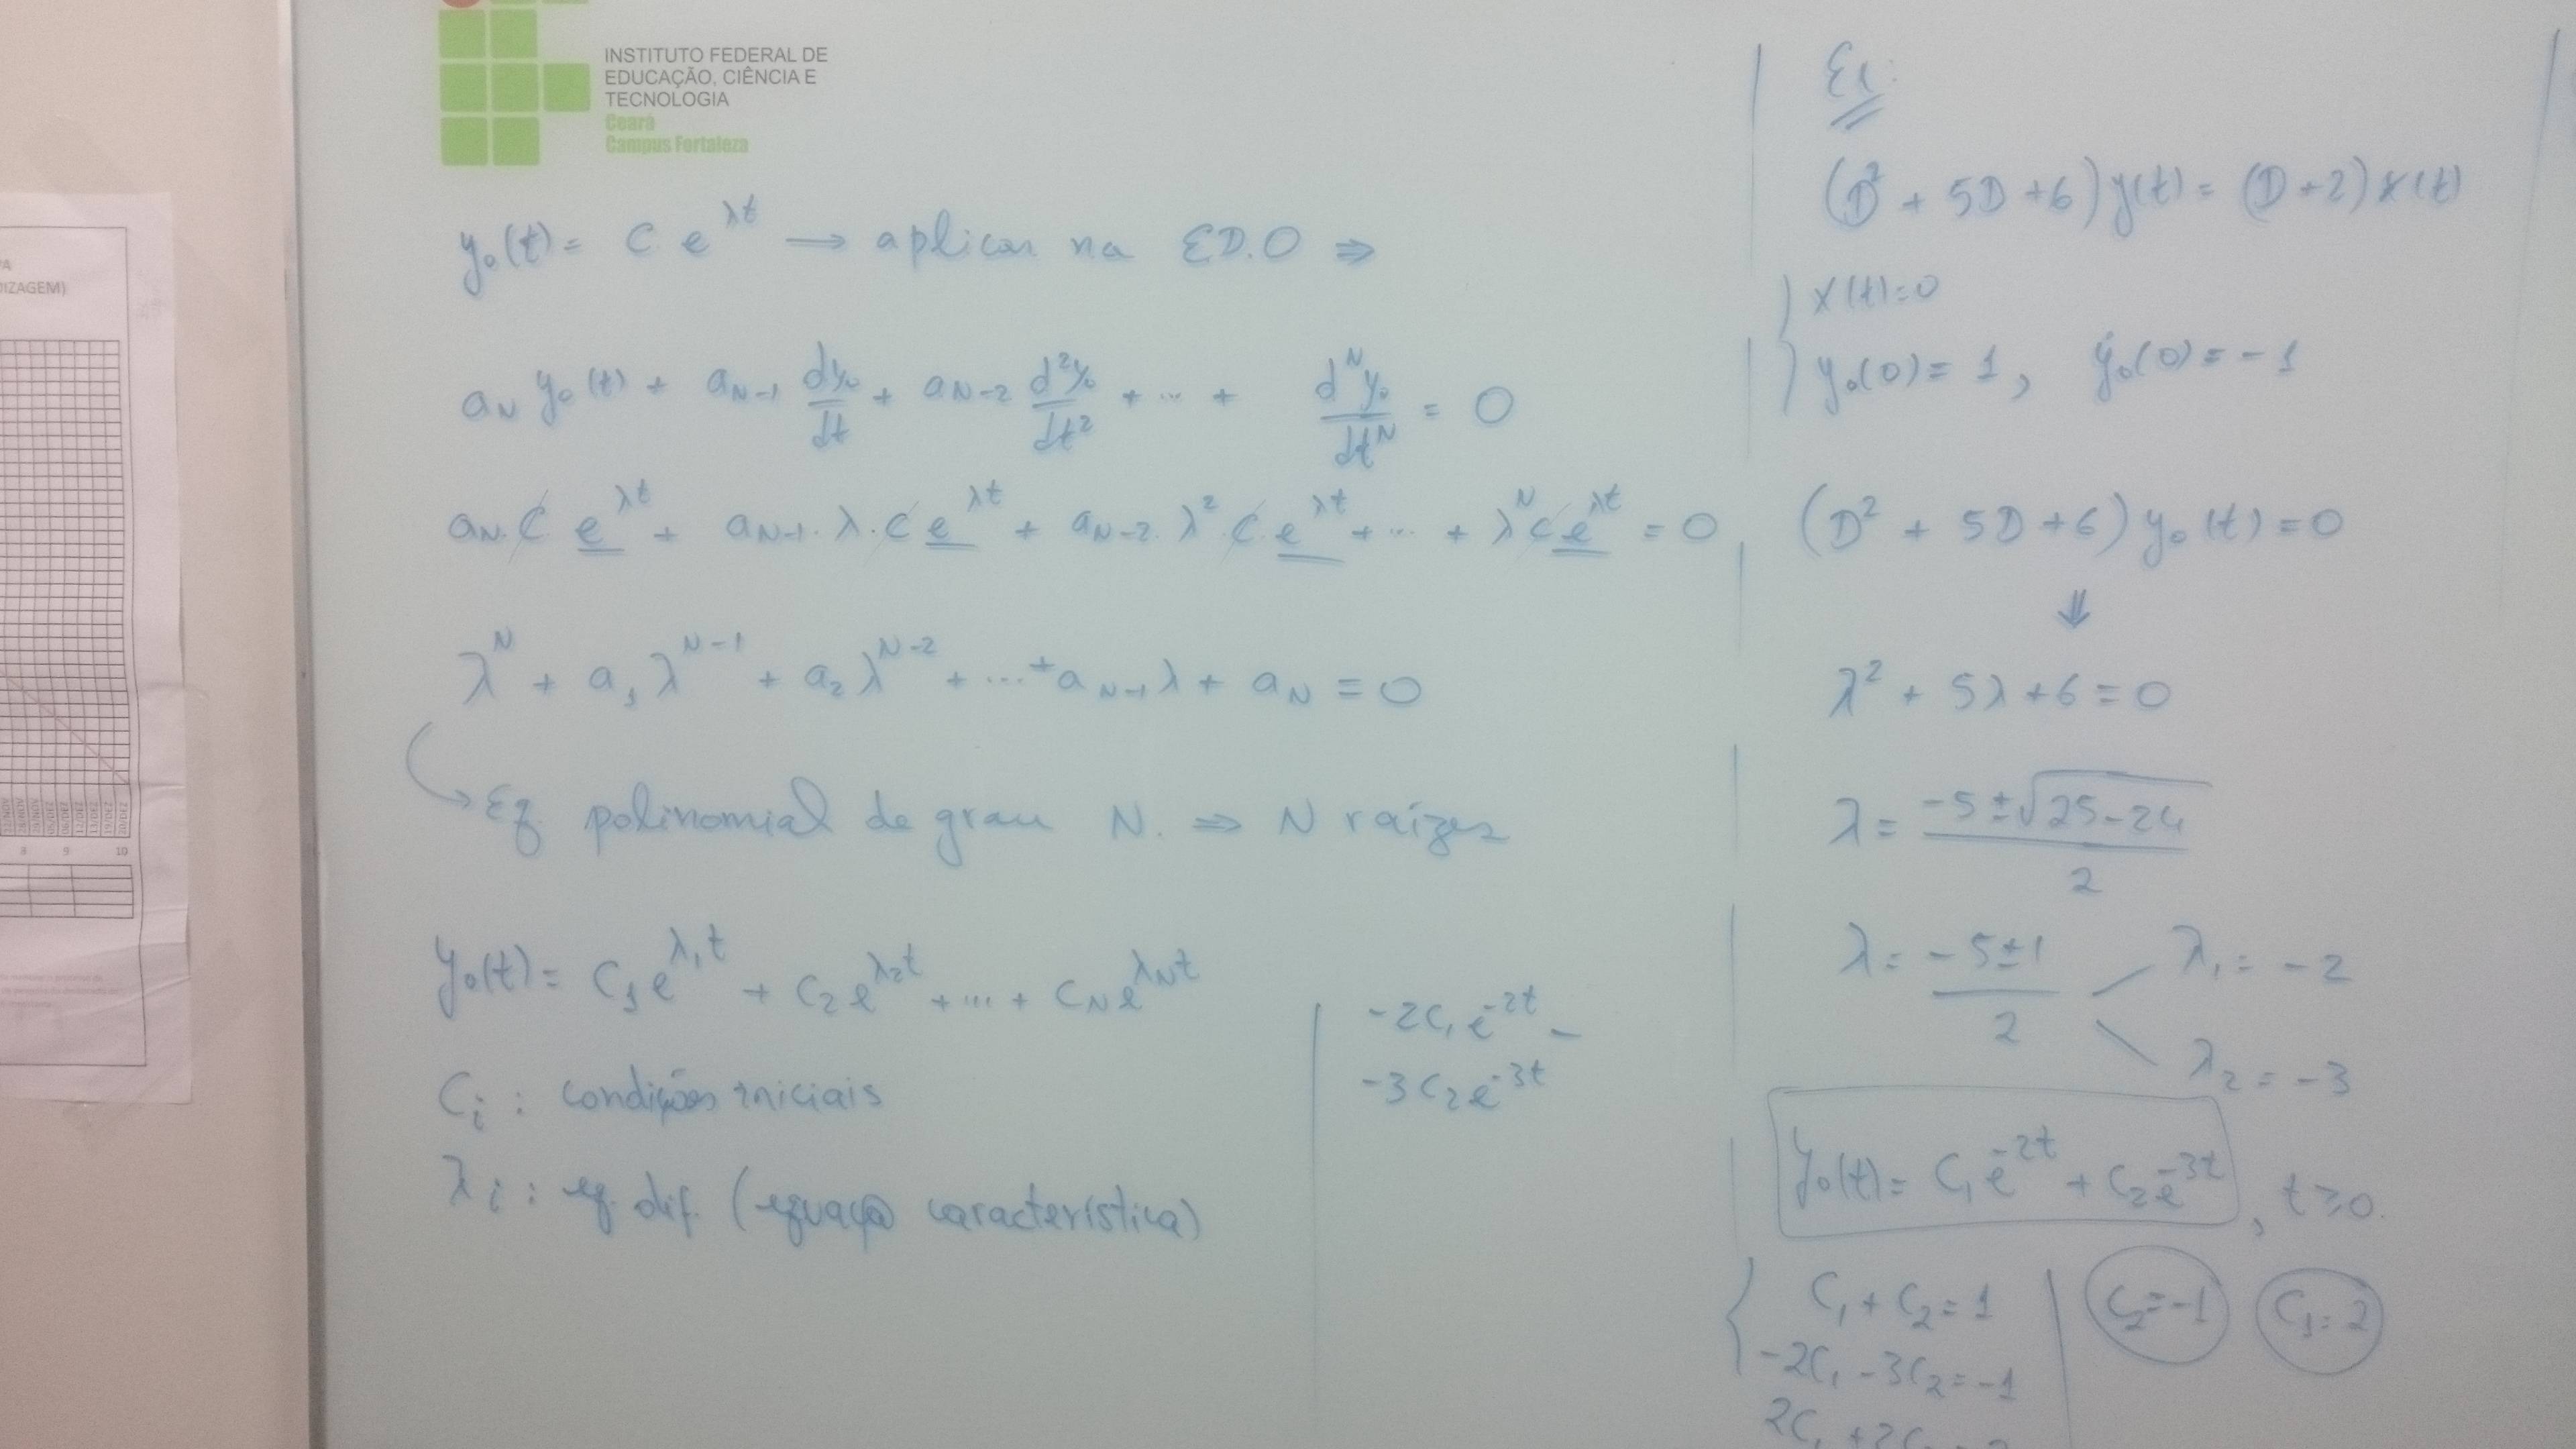 INSTITUTO FEDERAL DE
EDUCAÇÃO, CIÊNCIA E
TECNOLOGIA
Ceará
Campus Fortaleza
y₀(t) = C e^{λt} → aplicar na E.D.O ⇒
a_N y₀(t) + a_{N-1} dy₀/dt + a_{N-2} d²y₀/dt² + ... + d^N y₀/dt^N = 0
a_N · C e^{λt} + a_{N-1} · λ · C e^{λt} + a_{N-2} · λ² C e^{λt} + ... + λ^N C e^{λt} = 0
λ^N + a₁ λ^{N-1} + a₂ λ^{N-2} + ... + a_{N-1} λ + a_N = 0
Eq. polinomial de grau N. ⇒ N raízes
y₀(t) = C₁ e^{λ₁t} + C₂ e^{λ₂t} + ... + C_N e^{λ_N t}
C_i : condições iniciais
λ_i : eq. dif. (equação característica)
-2C₁ e^{-2t} -
-3C₂ e^{-3t}
Ex:
(D² + 5D + 6) y(t) = (D + 2) x(t)
x(t) = 0
y₀(0) = 1, ẏ₀(0) = -1
(D² + 5D + 6) y₀(t) = 0
⇓
λ² + 5λ + 6 = 0
λ = (-5 ± √(25 - 24)) / 2
λ = (-5 ± 1) / 2
λ₁ = -2
λ₂ = -3
y₀(t) = C₁ e^{-2t} + C₂ e^{-3t}, t ≥ 0.
C₁ + C₂ = 1
-2C₁ - 3C₂ = -1
2C₁ + 2C₂
C₂ = -1 C₁ = 2
IZAGEM)
8 9 10